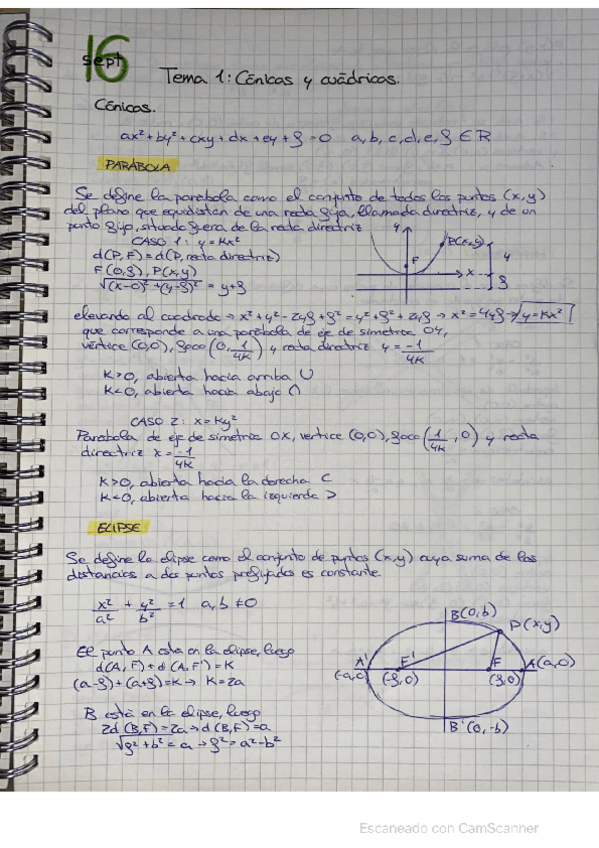 16
sept
Tema 1: Cónicas y cuádricas.
Cónicas.
ax² + by² + cxy + dx + ey + f = 0   a, b, c, d, e, f ∈ R
PARÁBOLA
Se define la parábola como el conjunto de todos los puntos (x,y)
del plano que equidistan de una recta fija, llamada directriz, y de un
punto fijo, situado fuera de la recta directriz
CASO 1: y = Kx²
d(P, F) = d(P, recta directriz)
F(0,f), P(x,y)
√(x-0)² + (y-f)² = y+f
y
P(x,y)
F
x
y
f
elevando al cuadrado → x² + y² - 2yf + f² = y² + f² + 2yf → x² = 4yf → y = Kx²
que corresponde a una parábola de eje de simetría OY,
vértice (0,0), foco (0, 1/4K) y recta directriz y = -1/4K
K>0, abierta hacia arriba ∪
K<0, abierta hacia abajo ∩
CASO 2: x = Ky²
Parábola de eje de simetría OX, vértice (0,0), foco (1/4K, 0) y recta
directriz x = -1/4K
K>0, abierta hacia la derecha ⊂
K<0, abierta hacia la izquierda ⊃
ELIPSE
Se define la elipse como el conjunto de puntos (x,y) cuya suma de las
distancias a dos puntos prefijados es constante.
x²/a² + y²/b² = 1   a, b ≠ 0
El punto A está en la elipse, luego
d(A, F) + d(A, F') = K
(a-f) + (a+f) = K → K = 2a
B está en la elipse, luego
2d(B,F) = 2a → d(B,F) = a
√f² + b² = a → f² = a² - b²
B(0,b)
P(x,y)
A'
F'
F
A(a,0)
(-a,0)
(-f,0)
(f,0)
B'(0,-b)
Escaneado con CamScanner